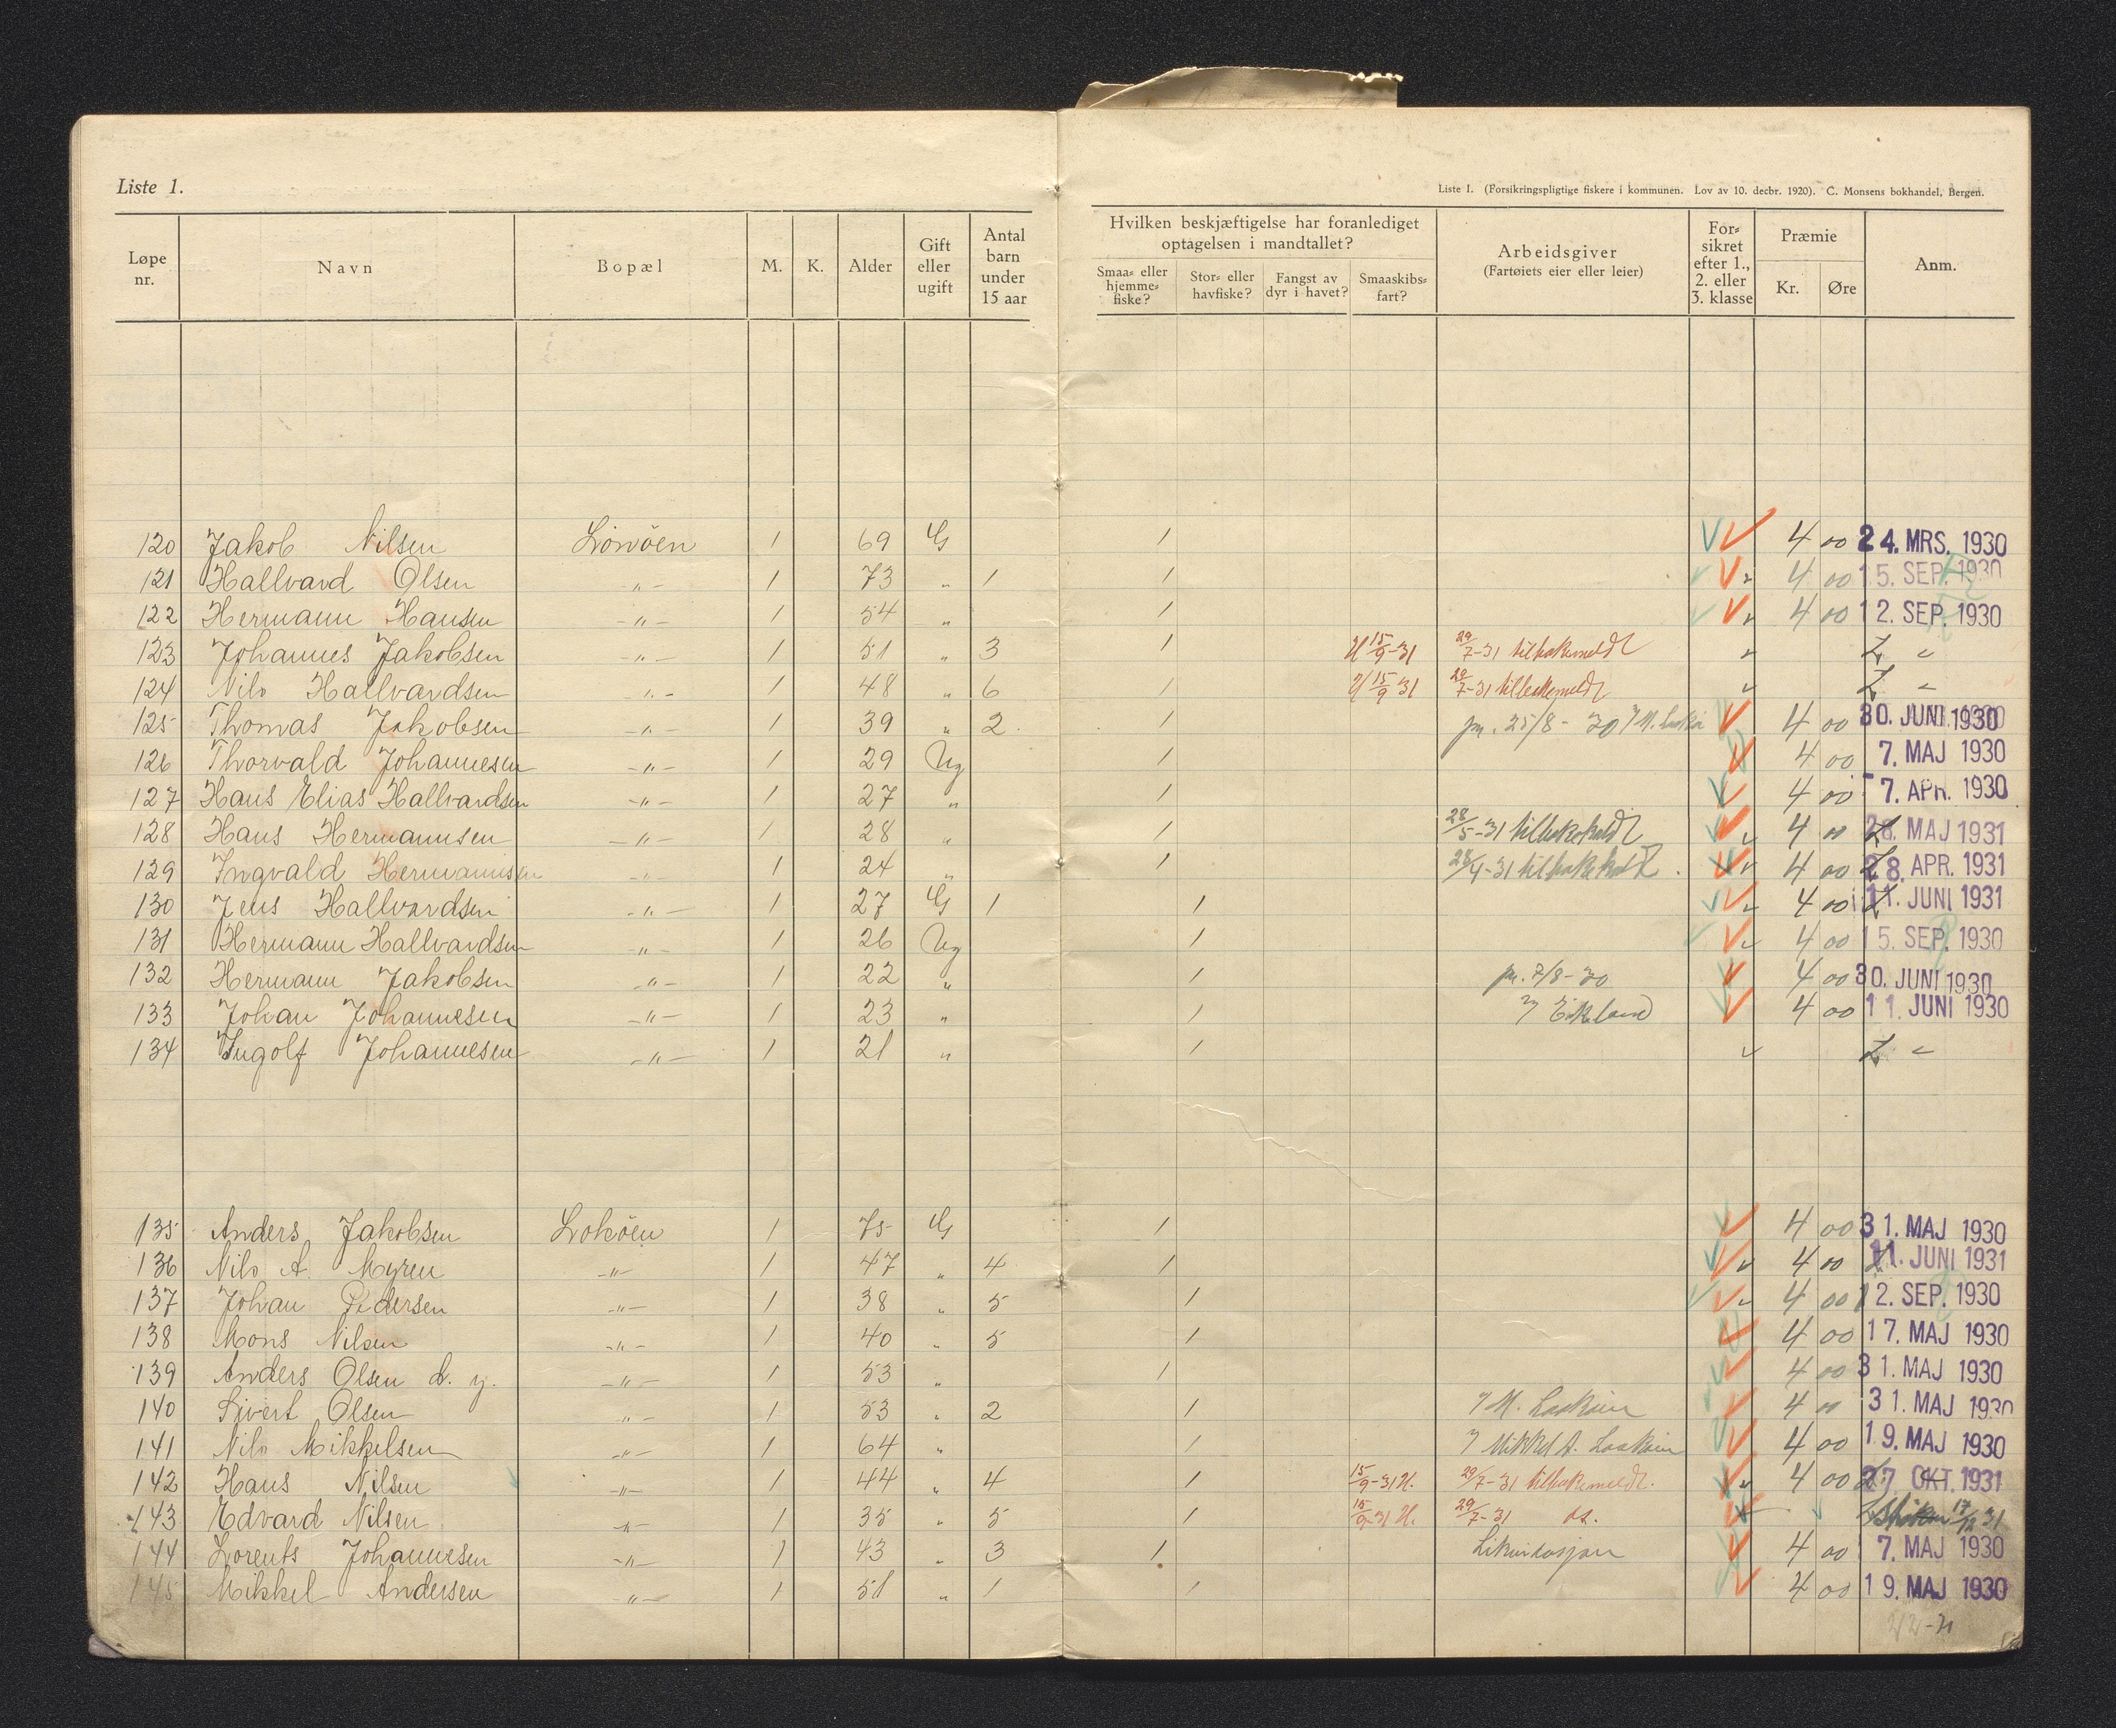 Liste 1.
Liste I. (Forsikringspligtige fiskere i kommunen. Lov av 10. decbr. 1920). C. Monsens bokhandel, Bergen.
Løpe nr. | Navn | Bopæl | M. | K. | Alder | Gift eller ugift | Antal barn under 15 aar | Hvilken beskjæftigelse har foranlediget optagelsen i mandtallet? | Smaa- eller hjemmefiske? | Stor- eller havfiske? | Fangst av dyr i havet? | Smaaskibsfart? | Arbeidsgiver (Fartøiets eier eller leier) | Forsikret efter 1., 2. eller 3. klasse | Præmie | Kr. | Øre | Anm.
120 Jakob Nilsen Lövöen 1 69 G 1 4 00 24. MRS. 1930
121 Hallvard Olsen -"- 1 73 " 1 1 4 00 15. SEP. 1930
122 Hermann Hansen -"- 1 54 " 1 4 00 12. SEP. 1930
123 Johannes Jakobsen -"- 1 51 " 3 1 U 15/9-31 29/7-31 tilbakemeldt L "
124 Nils Hallvardsen -"- 1 48 " 6 1 U 15/9 31 29/7-31 tilbakemeldt L "
125 Thomas Jakobsen -"- 1 39 " 2 1 pr. 25/8-30 4 00 30. JUNI 1930
126 Thorvald Johannesen -"- 1 29 Ug 1 4 00 7. MAJ 1930
127 Hans Elias Hallvardsen -"- 1 27 " 1 4 00 7. APR. 1930
128 Hans Hermannsen -"- 1 28 " 1 28/5-31 4 00 28. MAJ 1931
129 Ingvald Hermannsen -"- 1 24 " 1 28/4-31 4 00 28. APR. 1931
130 Jens Hallvardsen -"- 1 27 G 1 1 4 00 11. JUNI 1931
131 Hermann Hallvardsen -"- 1 26 Ug 1 4 00 15. SEP. 1930
132 Hermann Jakobsen -"- 1 22 " 1 pr. 7/8-30 4 00 30. JUNI 1930
133 Johan Johannesen -"- 1 23 " 1 Eikeland 4 00 11. JUNI 1930
134 Ingolf Johannesen -"- 1 21 " 1 L "
135 Anders Jakobsen Lokøen 1 75 G 1 4 00 31. MAJ 1930
136 Nils A. Myren -"- 1 47 " 4 1 4 00 11. JUNI 1931
137 Johan Pedersen -"- 1 38 " 5 1 4 00 12. SEP. 1930
138 Mons Nilsen -"- 1 40 " 5 1 4 00 17. MAJ 1930
139 Anders Olsen d. y. -"- 1 53 " 1 4 00 31. MAJ 1930
140 Sivert Olsen -"- 1 53 " 2 1 M. Laakøen 4 00 31. MAJ 1930
141 Nils Mikkelsen -"- 1 64 " 1 Mikkel A. Laakøen 4 00 19. MAJ 1930
142 Hans Nilsen -"- 1 44 " 4 1 15/9-31 U. 29/7-31 tilbakemeldt. 4 00 27. OKT. 1931
143 Edvard Nilsen -"- 1 35 " 5 1 15/9-31 U. 29/7-31 do. 17/12 31
144 Lorents Johannesen -"- 1 43 " 3 1 Likvidasjon 4 00 7. MAJ 1930
145 Mikkel Andersen -"- 1 51 " 1 1 4 00 19. MAJ 1930